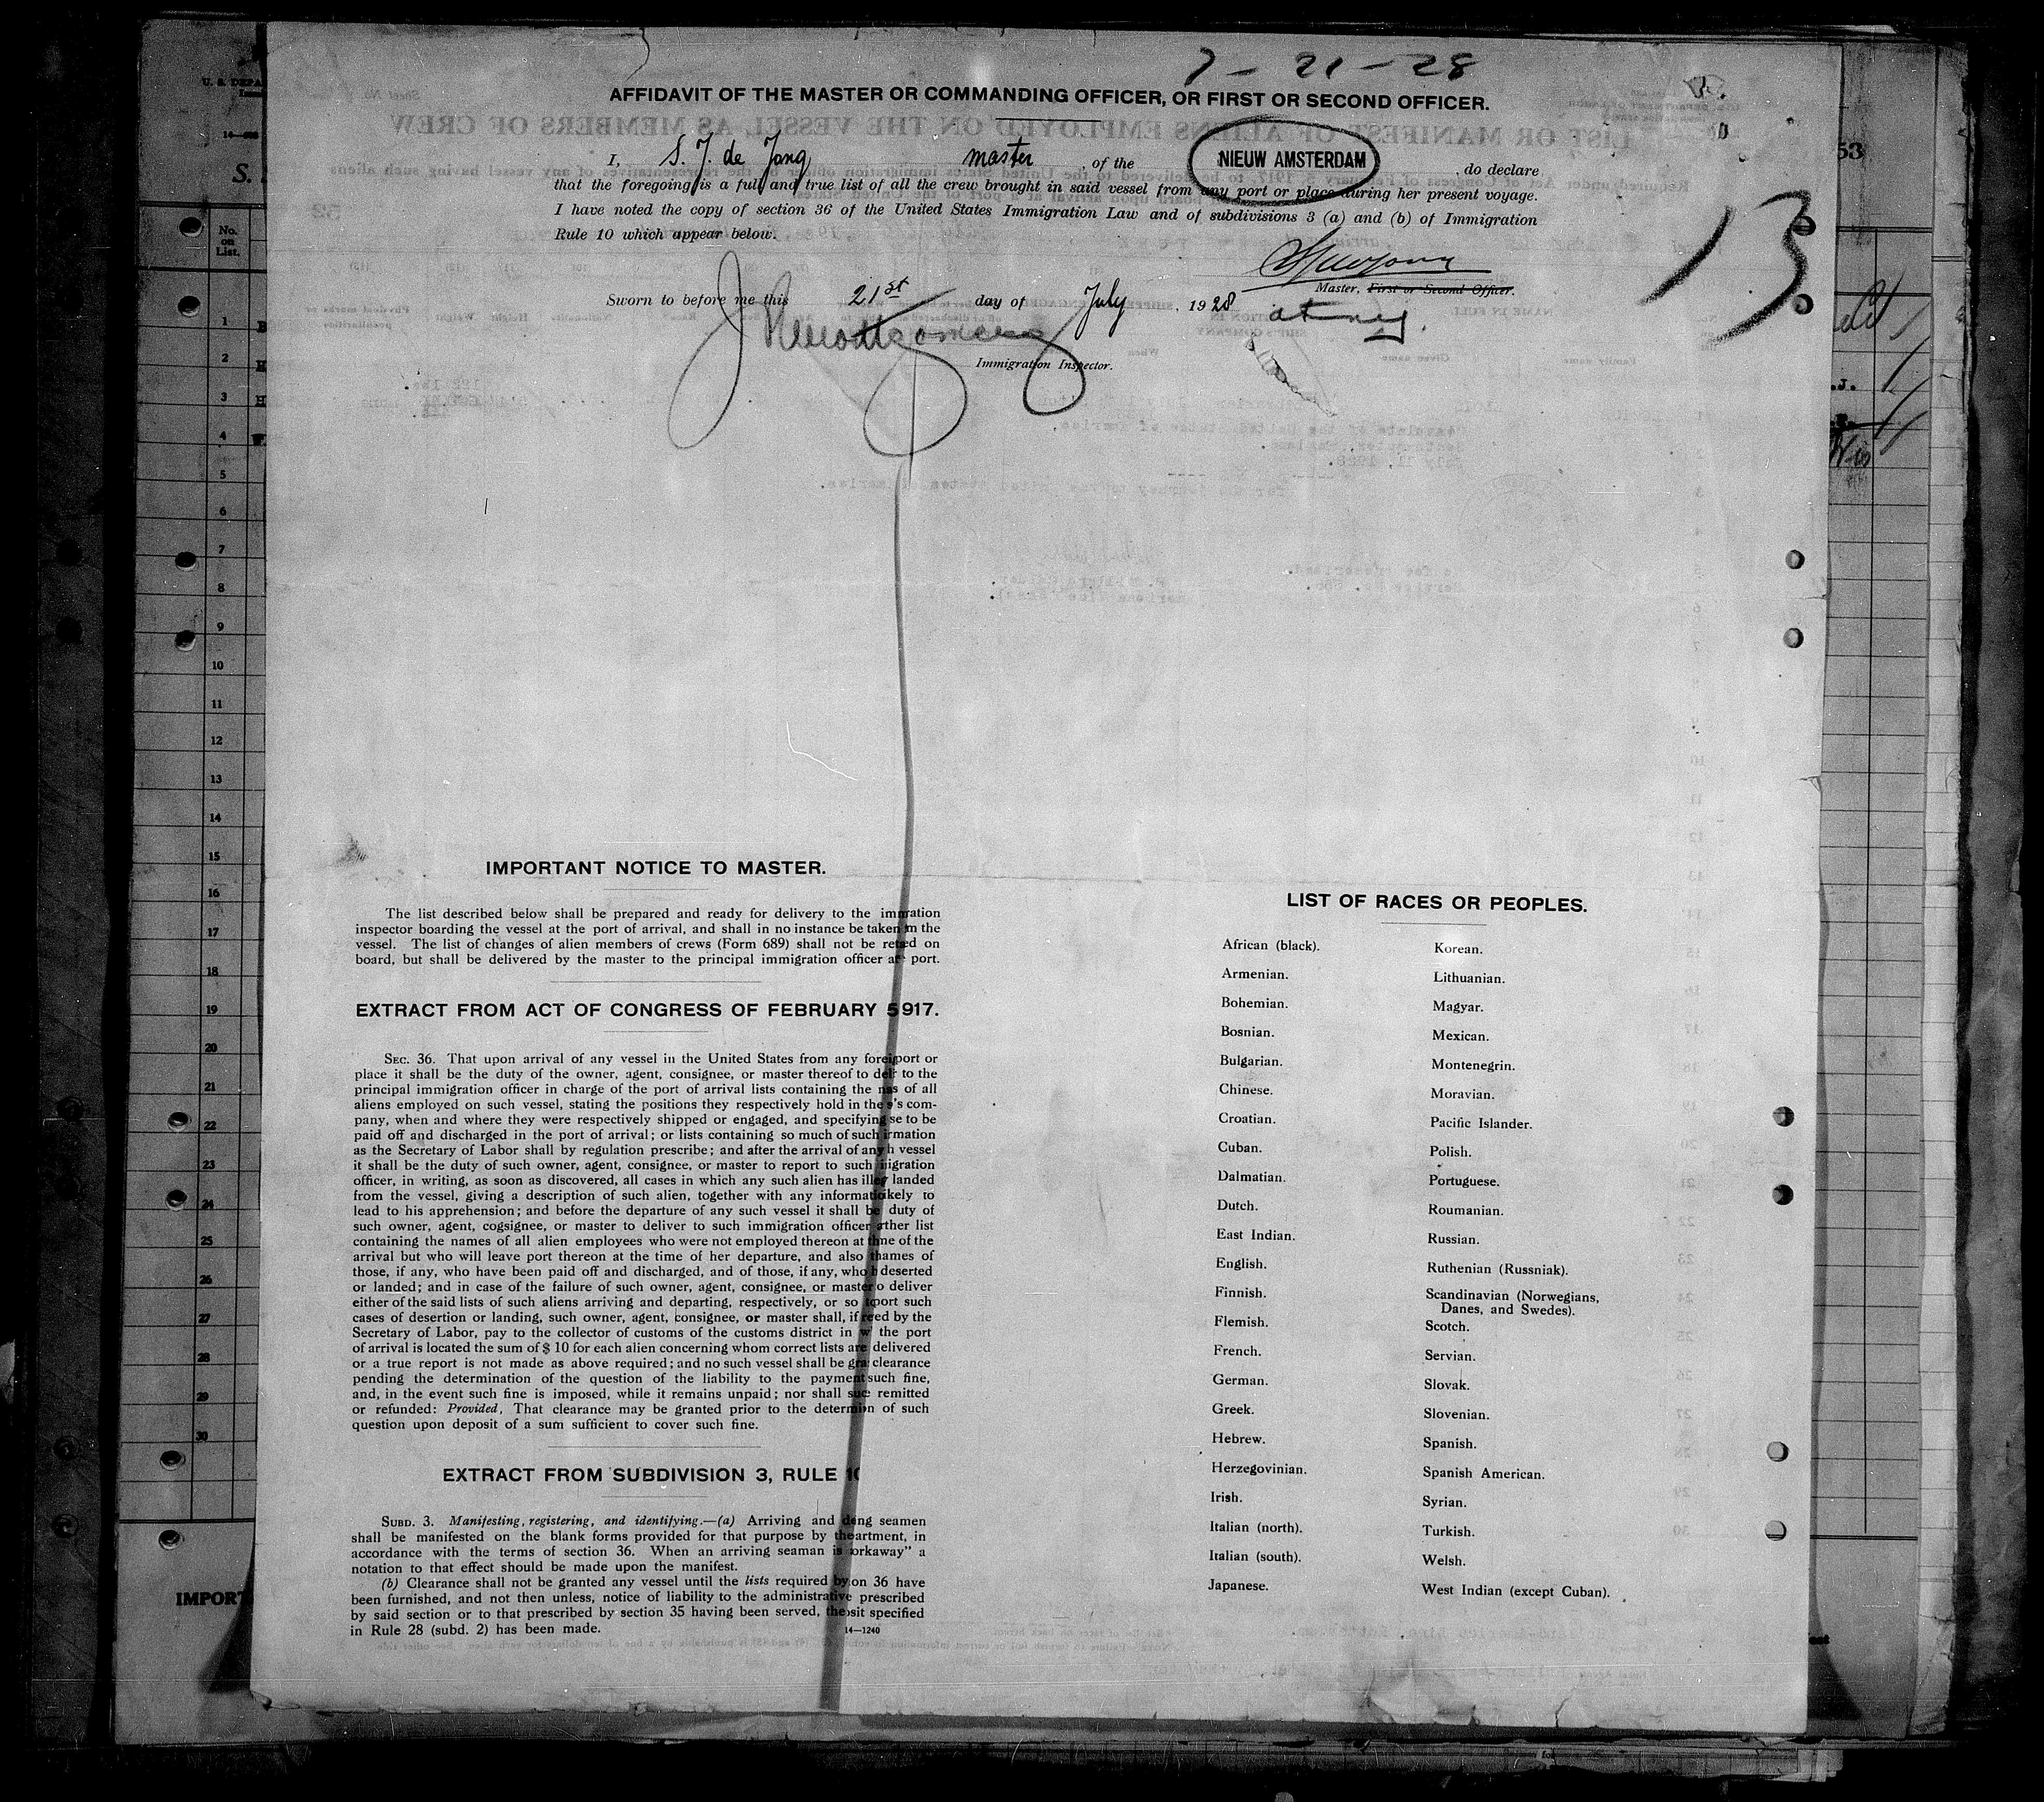 7-21-28
AFFIDAVIT OF THE MASTER OR COMMANDING OFFICER, OR FIRST OR SECOND OFFICER.
I, S. J. de Jong master, of the NIEUW AMSTERDAM, do declare
that the foregoing is a full and true list of all the crew brought in said vessel from any port or place during her present voyage.
I have noted the copy of section 36 of the United States Immigration Law and of subdivisions 3 (a) and (b) of Immigration
Rule 10 which appear below.
13
Master, First or Second Officer.
Sworn to before me this 21st day of July, 1928 at ny.
J Montgomery
Immigration Inspector.
IMPORTANT NOTICE TO MASTER.
The list described below shall be prepared and ready for delivery to the imm ration
inspector boarding the vessel at the port of arrival, and shall in no instance be taken m the
vessel. The list of changes of alien members of crews (Form 689) shall not be ret ed on
board, but shall be delivered by the master to the principal immigration officer a port.
EXTRACT FROM ACT OF CONGRESS OF FEBRUARY 5 917.
SEC. 36. That upon arrival of any vessel in the United States from any forei port or
place it shall be the duty of the owner, agent, consignee, or master thereof to del to the
principal immigration officer in charge of the port of arrival lists containing the n s of all
aliens employed on such vessel, stating the positions they respectively hold in the s's com-
pany, when and where they were respectively shipped or engaged, and specifying se to be
paid off and discharged in the port of arrival; or lists containing so much of such i rmation
as the Secretary of Labor shall by regulation prescribe; and after the arrival of any h vessel
it shall be the duty of such owner, agent, consignee, or master to report to such i igration
officer, in writing, as soon as discovered, all cases in which any such alien has illeg landed
from the vessel, giving a description of such alien, together with any informati ikely to
lead to his apprehension; and before the departure of any such vessel it shall be duty of
such owner, agent, cogsignee, or master to deliver to such immigration officer rther list
containing the names of all alien employees who were not employed thereon at t me of the
arrival but who will leave port thereon at the time of her departure, and also t ames of
those, if any, who have been paid off and discharged, and of those, if any, who h deserted
or landed; and in case of the failure of such owner, agent, consignee, or master o deliver
either of the said lists of such aliens arriving and departing, respectively, or so t port such
cases of desertion or landing, such owner, agent, consignee, or master shall, if r ed by the
Secretary of Labor, pay to the collector of customs of the customs district in w the port
of arrival is located the sum of $10 for each alien concerning whom correct lists are delivered
or a true report is not made as above required; and no such vessel shall be gra clearance
pending the determination of the question of the liability to the payment such fine,
and, in the event such fine is imposed, while it remains unpaid; nor shall suc remitted
or refunded: Provided, That clearance may be granted prior to the determi n of such
question upon deposit of a sum sufficient to cover such fine.
EXTRACT FROM SUBDIVISION 3, RULE 10
SUBD. 3. Manifesting, registering, and identifying.—(a) Arriving and d ng seamen
shall be manifested on the blank forms provided for that purpose by the artment, in
accordance with the terms of section 36. When an arriving seaman is orkaway" a
notation to that effect should be made upon the manifest.
(b) Clearance shall not be granted any vessel until the lists required by on 36 have
been furnished, and not then unless, notice of liability to the administrative prescribed
by said section or to that prescribed by section 35 having been served, the osit specified
in Rule 28 (subd. 2) has been made.
14—1240
LIST OF RACES OR PEOPLES.
African (black).
Armenian.
Bohemian.
Bosnian.
Bulgarian.
Chinese.
Croatian.
Cuban.
Dalmatian.
Dutch.
East Indian.
English.
Finnish.
Flemish.
French.
German.
Greek.
Hebrew.
Herzegovinian.
Irish.
Italian (north).
Italian (south).
Japanese.
Korean.
Lithuanian.
Magyar.
Mexican.
Montenegrin.
Moravian.
Pacific Islander.
Polish.
Portuguese.
Roumanian.
Russian.
Ruthenian (Russniak).
Scandinavian (Norwegians,
Danes, and Swedes).
Scotch.
Servian.
Slovak.
Slovenian.
Spanish.
Spanish American.
Syrian.
Turkish.
Welsh.
West Indian (except Cuban).
U. S. DEPA
S.
No.
on
List.
1
2
3
4
5
6
7
8
9
10
11
12
13
14
15
16
17
18
19
20
21
22
23
24
25
26
27
28
29
30
IMPORT
53